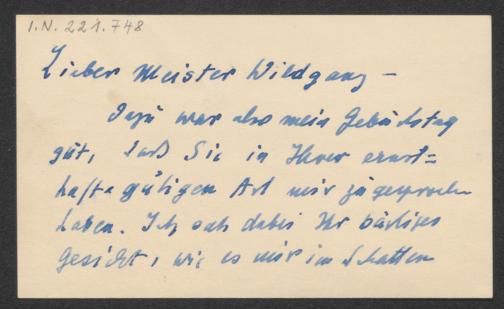 I.N. 221.748
Lieber Meister Wildgans –
Dazu war also mein Geburtstag
gut, daß Sie in Ihrer ernst=
haft gütigen Art mir zugesprochen
haben. Ich sah dabei Ihr
Gesicht, wie es mir im Schatten